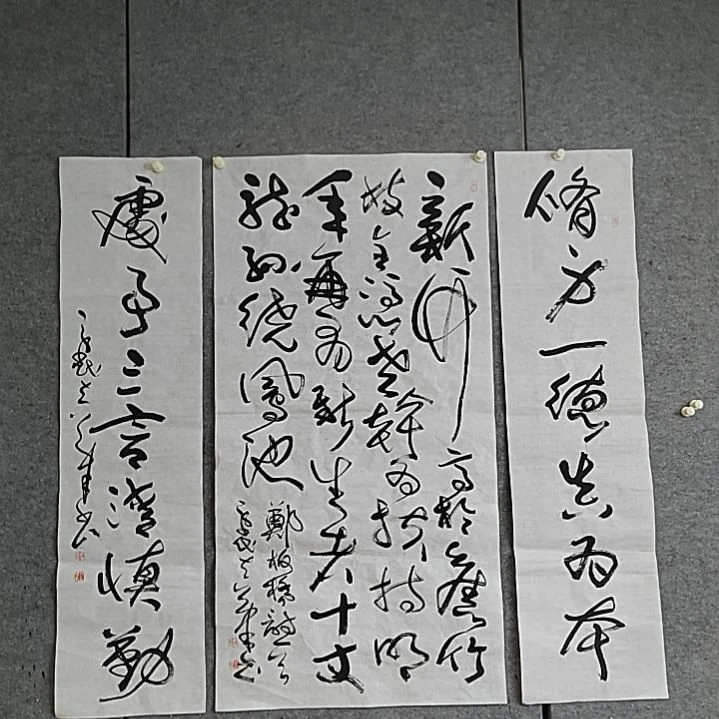 脩身一德真為本
新竹高於舊竹
枝全憑老幹為扶持明
年再有新生者十丈
龍孫繞鳳池
鄭板橋詩
處事三言清慎勤